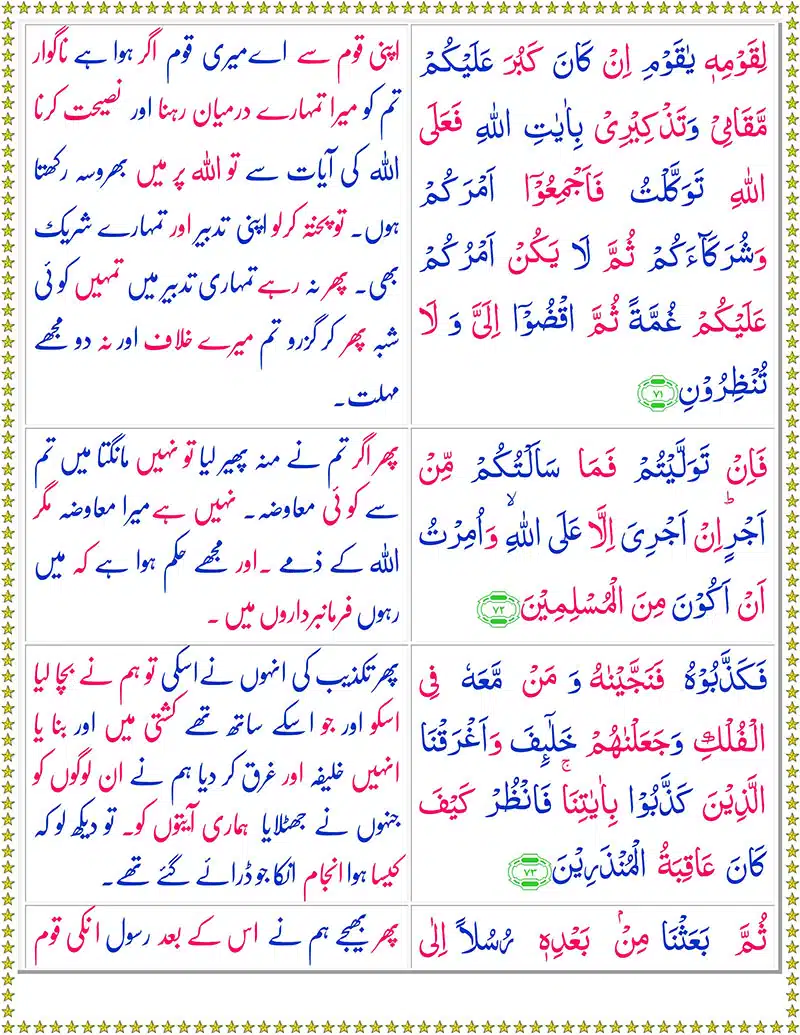 لِقَوْمِهٖ يٰقَوْمِ اِنْ كَانَ كَبُرَ عَلَيْكُمْ
مَّقَامِيْ وَتَذْكِيْرِيْ بِاٰيٰتِ اللّٰهِ فَعَلَى
اللّٰهِ تَوَكَّلْتُ فَاَجْمِعُوْٓا اَمْرَكُمْ
وَشُرَكَآءَكُمْ ثُمَّ لَا يَكُنْ اَمْرُكُمْ
عَلَيْكُمْ غُمَّةً ثُمَّ اقْضُوْٓا اِلَيَّ وَ لَا
تُنْظِرُوْنِ ۷۱
اپنی قوم سے اے میری قوم اگر ہوا ہے ناگوار
تم کو میرا تمہارے درمیان رہنا اور نصیحت کرنا
اللہ کی آیات سے تو اللہ پر میں بھروسہ رکھتا
ہوں۔ تو پختہ کرلو اپنی تدبیر اور تمہارے شریک
بھی۔ پھر نہ رہے تمہاری تدبیر میں تمہیں کوئی
شبہ پھر کر گزرو تم میرے خلاف اور نہ دو مجھے
مہلت۔
فَاِنْ تَوَلَّيْتُمْ فَمَا سَاَلْتُكُمْ مِّنْ
اَجْرٍ ؕ اِنْ اَجْرِيَ اِلَّا عَلَى اللّٰهِ ۙ وَاُمِرْتُ
اَنْ اَكُوْنَ مِنَ الْمُسْلِمِيْنَ ۷۲
پھر اگر تم نے منہ پھیر لیا تو نہیں مانگتا میں تم
سے کوئی معاوضہ۔ نہیں ہے میرا معاوضہ مگر
اللہ کے ذمے ۔اور مجھے حکم ہوا ہے کہ میں
رہوں فرمانبرداروں میں ۔
فَكَذَّبُوْهُ فَنَجَّيْنٰهُ وَ مَنْ مَّعَهٗ فِي
الْفُلْكِ وَجَعَلْنٰهُمْ خَلٰٓئِفَ وَاَغْرَقْنَا
الَّذِيْنَ كَذَّبُوْا بِاٰيٰتِنَا ۚ فَانْظُرْ كَيْفَ
كَانَ عَاقِبَةُ الْمُنْذَرِيْنَ ۷۳
پھر تکذیب کی انہوں نے اسکی تو ہم نے بچا لیا
اسکو اور جو اسکے ساتھ تھے کشتی میں اور بنا یا
انہیں خلیفہ اور غرق کر دیا ہم نے ان لوگوں کو
جنہوں نے جھٹلایا ہماری آیتوں کو۔ تو دیکھ لو کہ
کیسا ہوا انجام انکا جو ڈرائے گئے تھے۔
ثُمَّ بَعَثْنَا مِنْۢ بَعْدِهٖ رُسُلًا اِلٰى
پھر بھیجے ہم نے اس کے بعد رسول انکی قوم